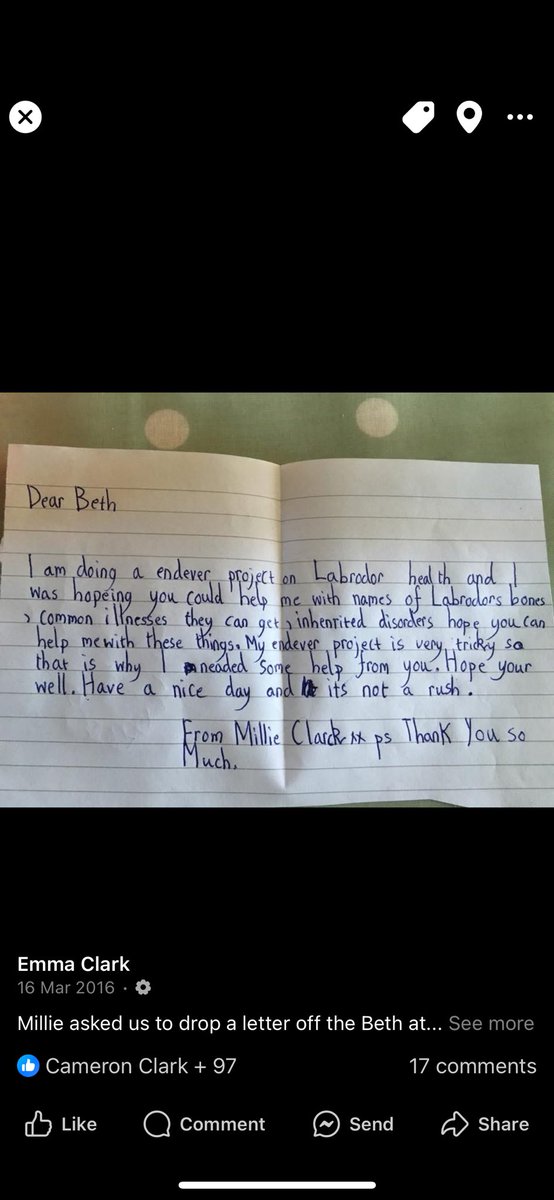 Dear Beth
I am doing a endever project on Labrodor health and I
was hopeing you could help me with names of Labrodors bones
, common illnesses they can get, inhenrited disorders hope you can
help me with these things. My endever project is very tricky so
that is why I neaded some help from you. Hope your
well. Have a nice day and its not a rush.
From Millie Clarck xx ps Thank You so
Much.
Emma Clark
16 Mar 2016 ·
Millie asked us to drop a letter off the Beth at... See more
Cameron Clark + 97 17 comments
Like Comment Send Share